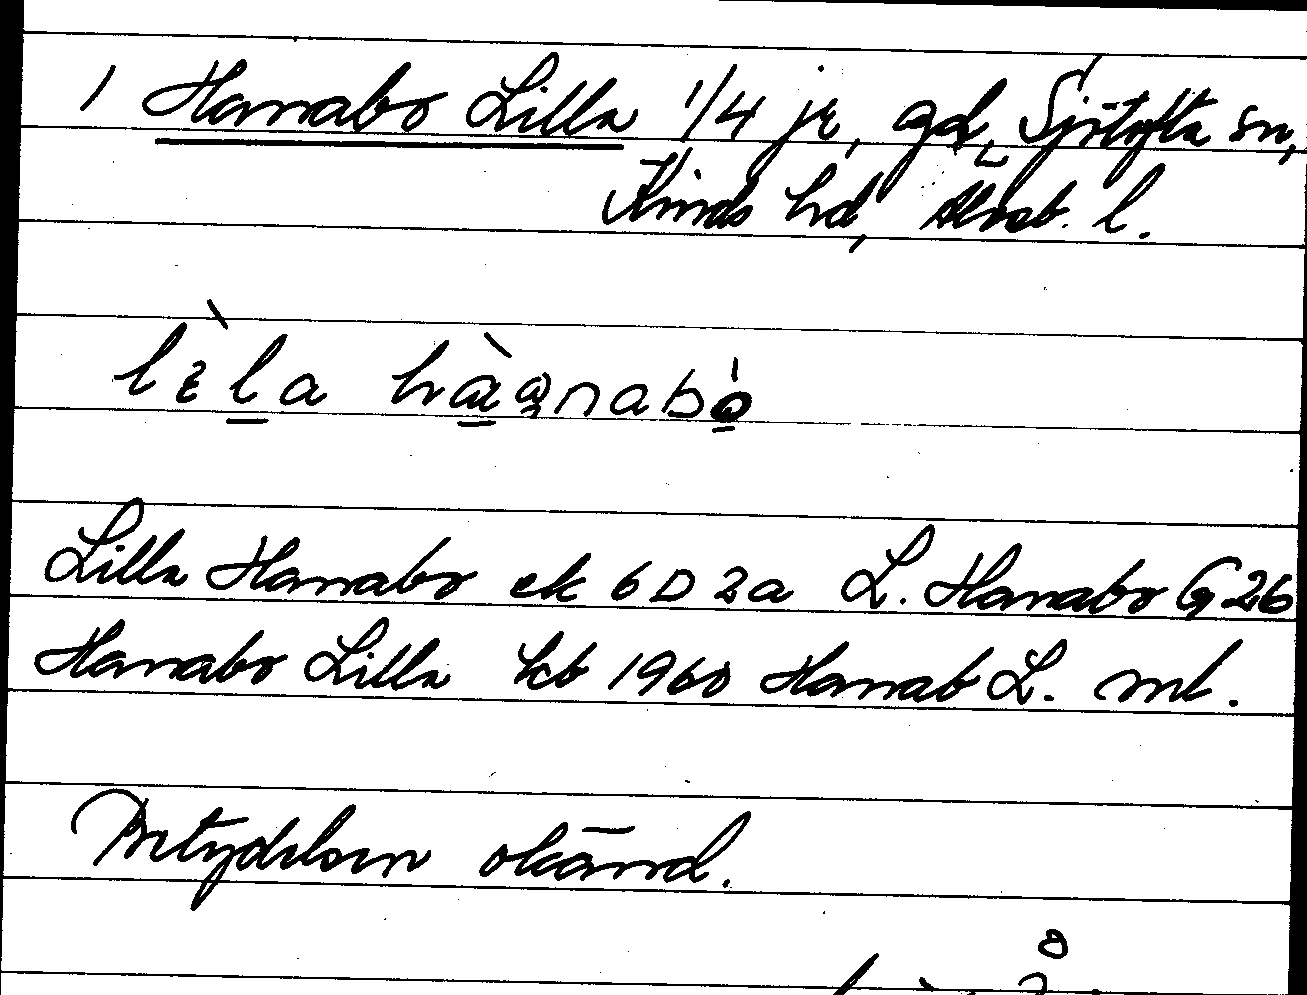 1 Hanabo Lilla 1/4 je, gd, Sjötofta sn,
Kinds hd, Älvsb. l.
Lilla Hanabo ek 6D 2a L. Hanabo G26
Hanabo Lilla kb 1960 Hanab L. ml.
Betydelsen okänd.